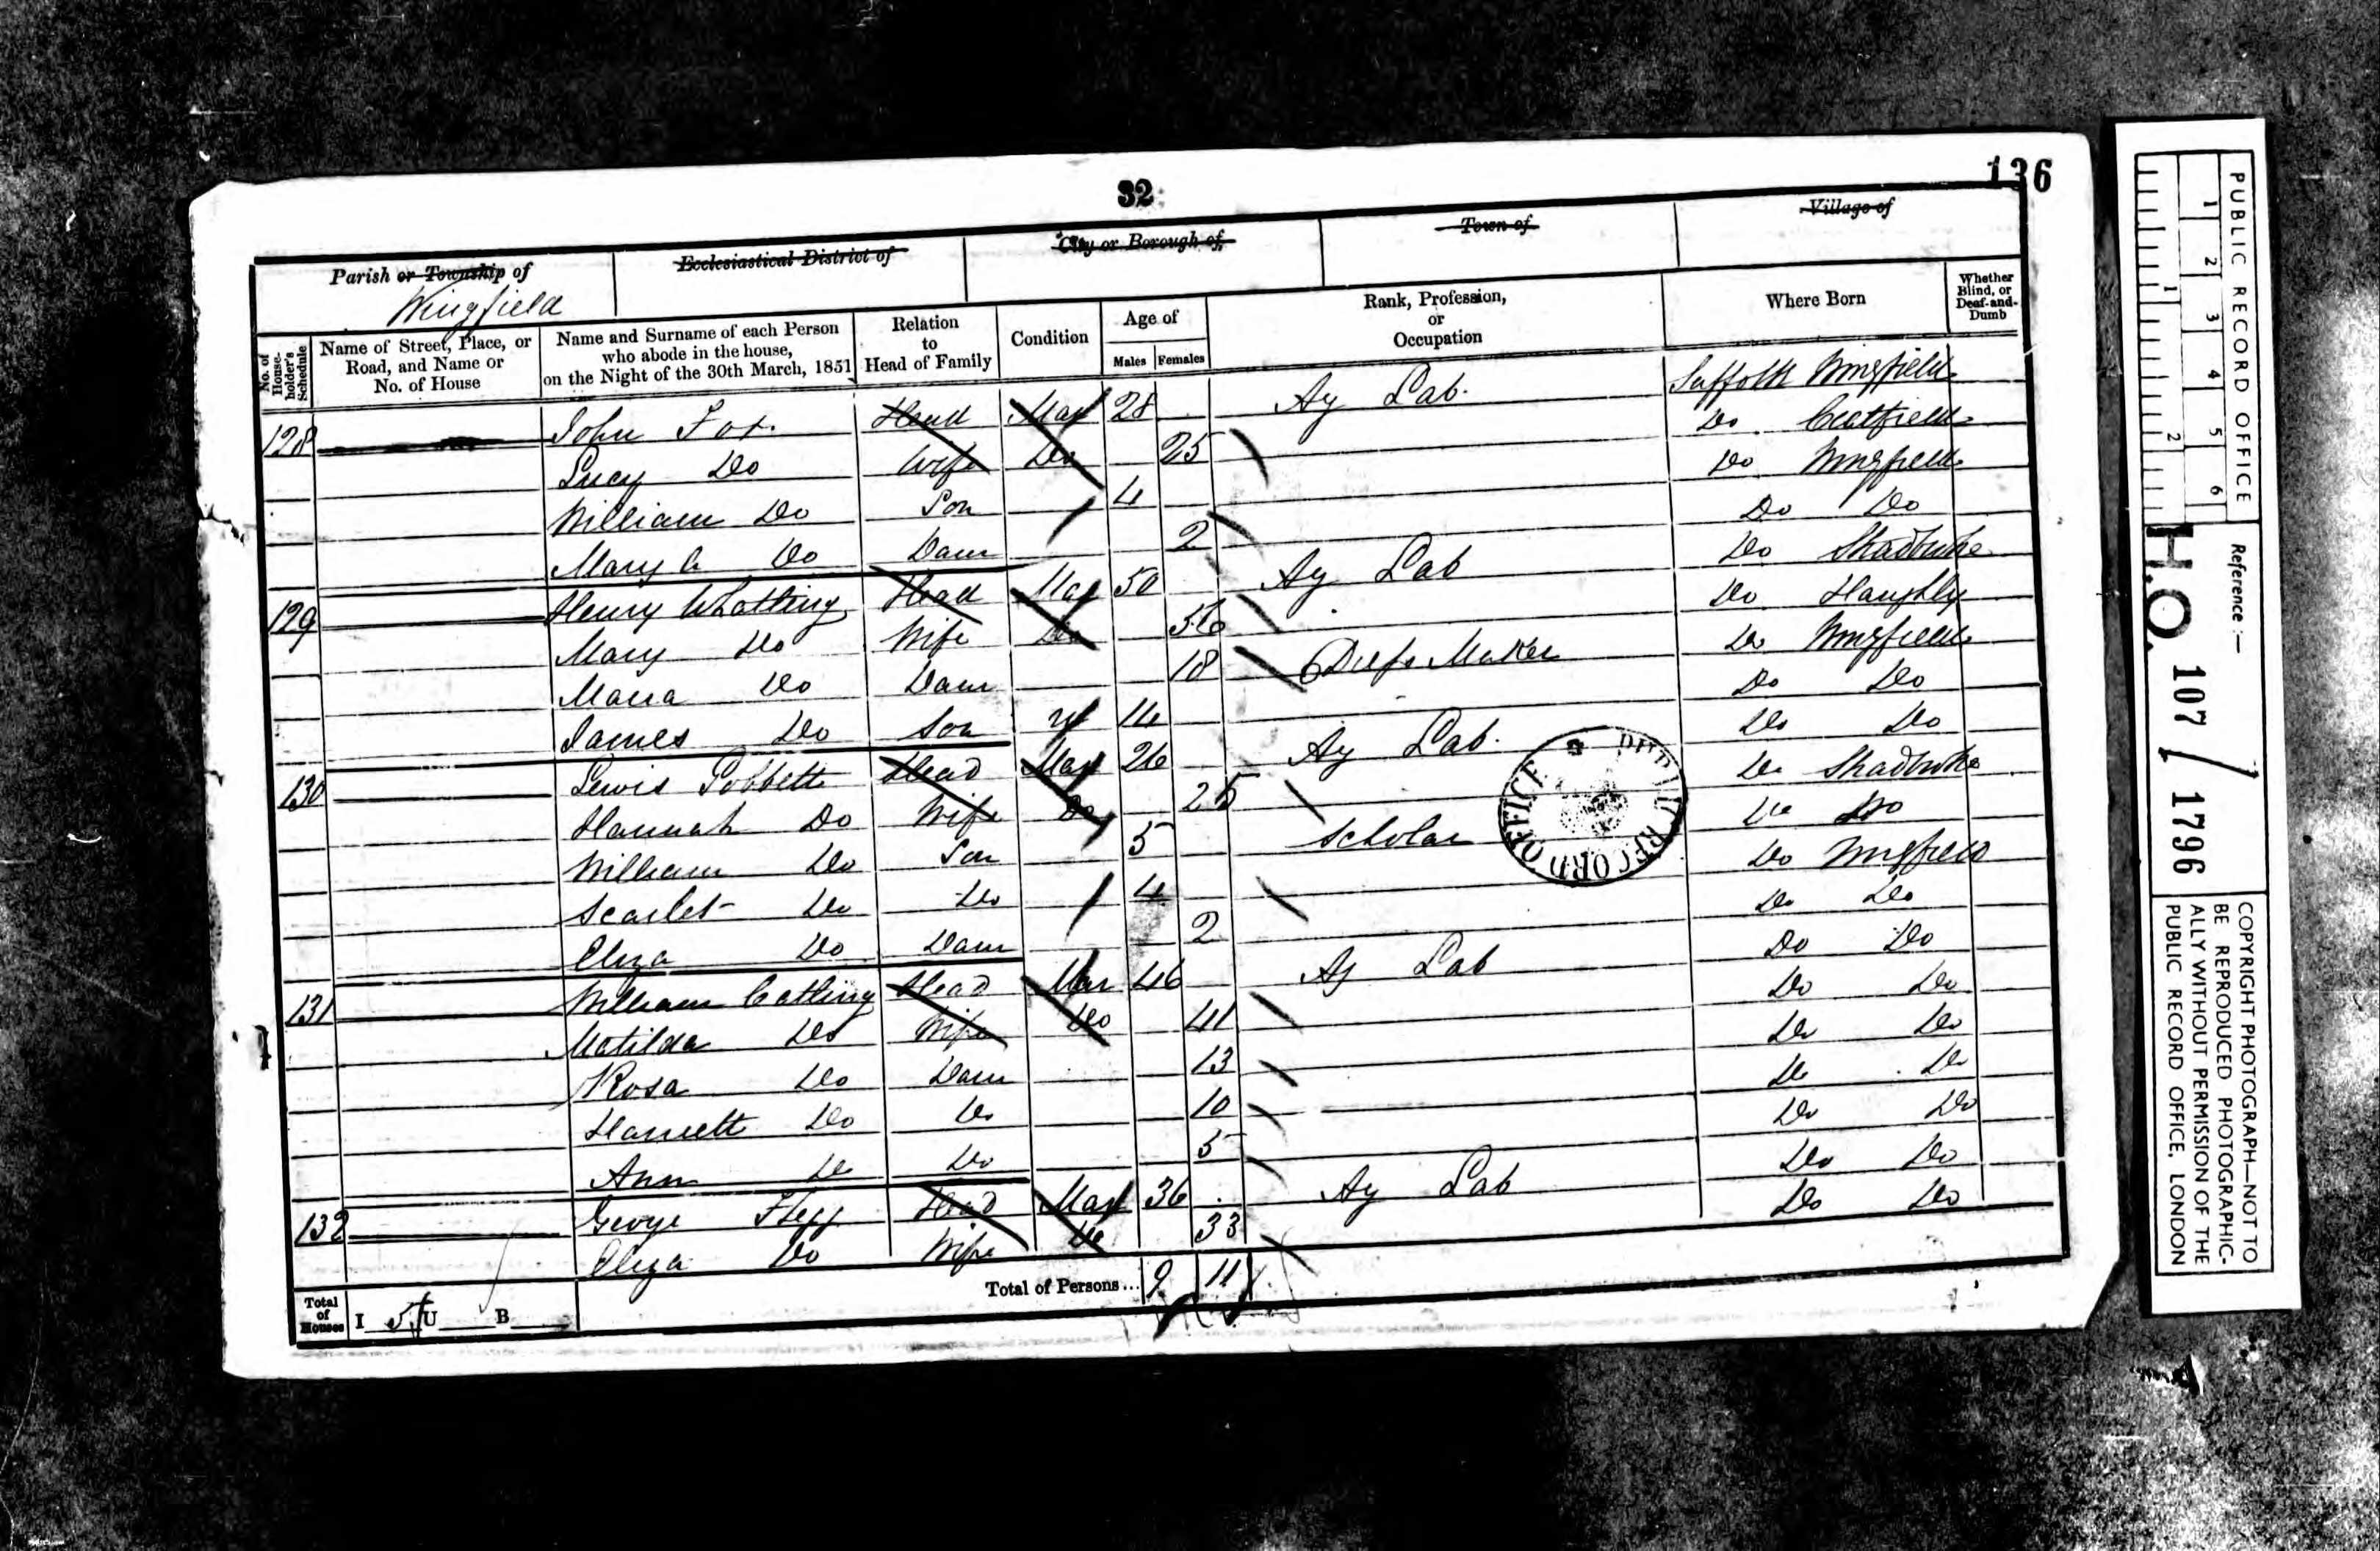 32
136
Parish or Township of
Wingfield
Ecclesiastical District of
City or Borough of
Town of
Village of
No. of House-holder's Schedule
Name of Street, Place, or Road, and Name or No. of House
Name and Surname of each Person who abode in the house, on the Night of the 30th March, 1851
Relation to Head of Family
Condition
Age of
Males Females
Rank, Profession, or Occupation
Where Born
Whether Blind, or Deaf-and-Dumb
128 John Fox Head Mar 28 Ag Lab. Suffolk Wingfield
Lucy Do Wife Do 25 Do
William Do Son 4 Do Wingfield
Mary A Do Daur 2 Do Do
129 Henry Whatling Head Mar 50 Ag Lab Do Shadbrooke
Mary Do Wife Do 56 Do Haughly
Maria Do Daur 18 Dress Maker Do Wingfield
James Do Son 14 Do Do
130 Lewis Pobbett Head Mar 26 Ag Lab. Do Do
Hannah Do Wife Do 25 Do Shadbrooke
William Do Son 5 Scholar Do Do
Scarlet Do Do 4 Do Wingfield
Eliza Do Daur 2 Do Do
131 William Catling Head Mar 46 Ag Lab Do Do
Matilda Do Wife Do 41 Do Do
Rosa Do Daur 13 Do Do
Harriett Do Do 10 Do Do
Ann Do Do 5 Do Do
132 George Flegg Head Mar 36 Ag Lab Do Do
Eliza Do Wife Do 33 Do Do
Total of Houses I 5 U B
Total of Persons... 9 11
PUBLIC RECORD OFFICE
PUBLIC RECORD OFFICE
1 2 3 4 5 6
1 2
Reference :—
H.O. 107 / 1796
COPYRIGHT PHOTOGRAPH—NOT TO
BE REPRODUCED PHOTOGRAPHIC-
ALLY WITHOUT PERMISSION OF THE
PUBLIC RECORD OFFICE, LONDON